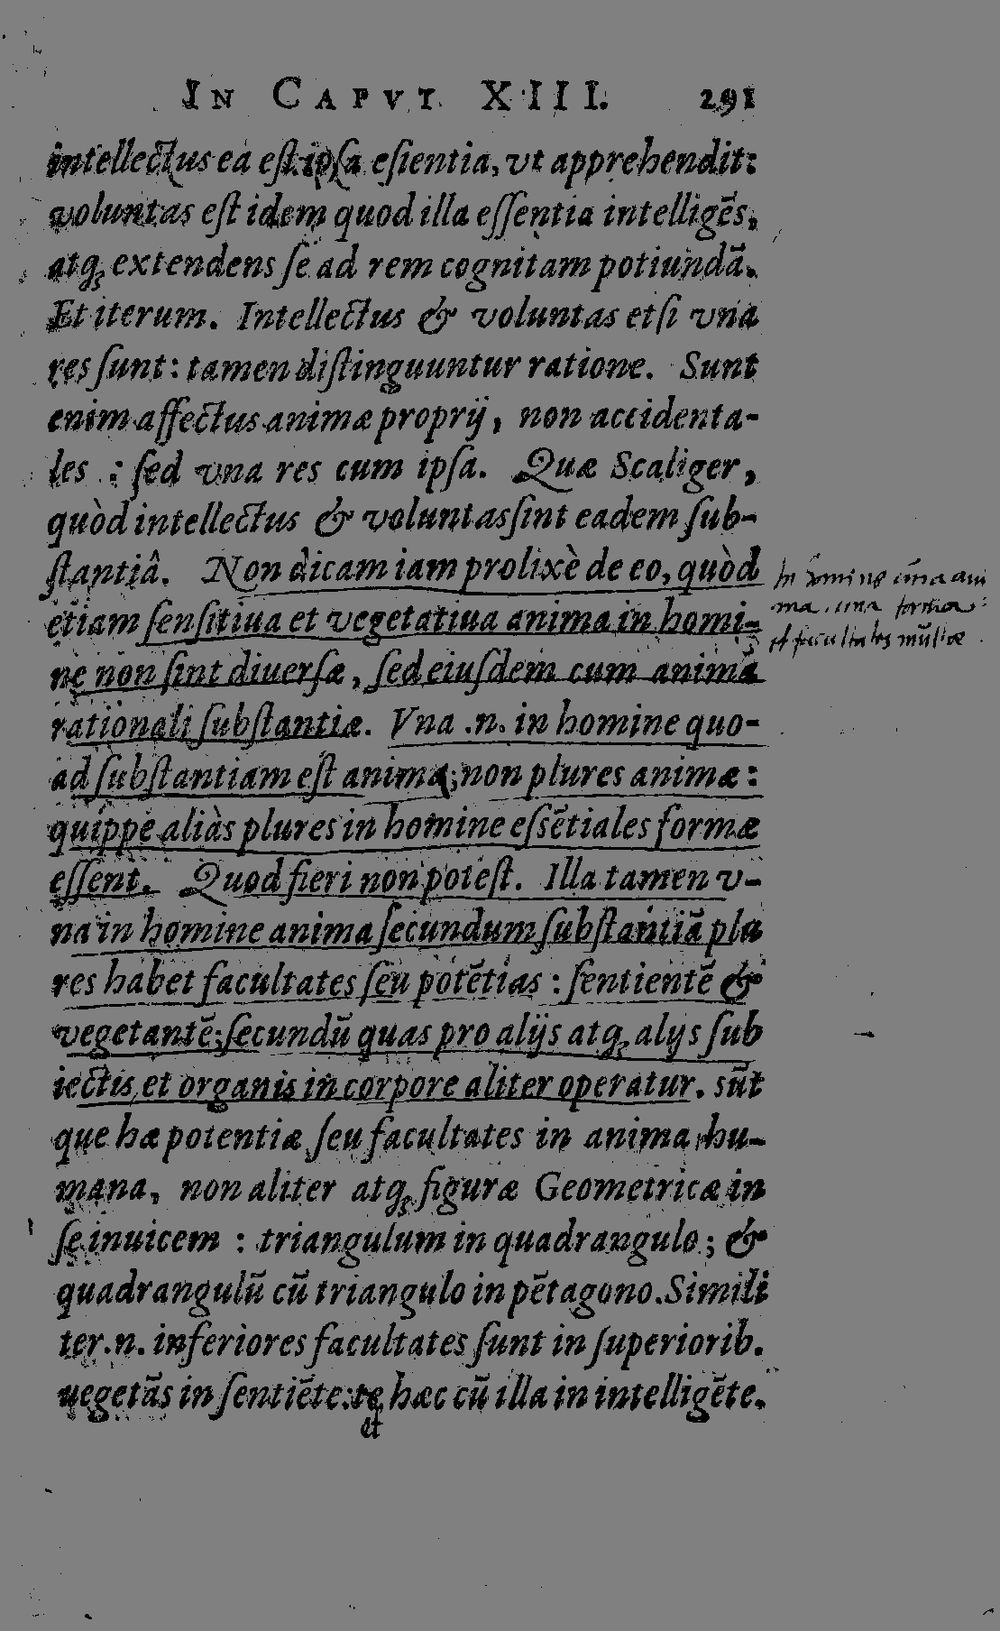 IN CAPVT XIII. 291
intellectus ea est ipsa essentia, vt apprehendit:
voluntas est idem quod illa essentia intelligēs,
atq; extendens se ad rem cognitam potiundā.
Et iterum. Intellectus & voluntas etsi vna
res sunt: tamen distinguuntur ratione. Sunt
enim affectus animæ proprij, non accidenta-
les : sed vna res cum ipsa. Quæ Scaliger,
quòd intellectus & voluntas sint eadem sub-
stantiâ. Non dicam iam prolixè de eo, quòd
etiam sensitiua et vegetatiua anima in homi-
ne non sint diuersæ, sed eiusdem cum animâ
rationali substantiæ. Vna .n. in homine quo-
ad substantiam est anima; non plures animæ:
quippe aliàs plures in homine essētiales formæ
essent. Quod fieri non potest. Illa tamen v-
na in homine anima secundum substantiā plu
res habet facultates seu potētias : sentientē &
vegetantē: secundū quas pro alijs atq; alijs sub
iectis et organis in corpore aliter operatur. sūt
que hæ potentiæ seu facultates in anima hu-
mana, non aliter atq; figuræ Geometricæ in
se inuicem : triangulum in quadrangulo; &
quadrangulū cū triangulo in pētagono. Simili
ter .n. inferiores facultates sunt in superiorib.
uegetās in sentiēte: te hæc cū illa in intelligēte.
et
In homine una ani
ma, una forma
et facultates multæ